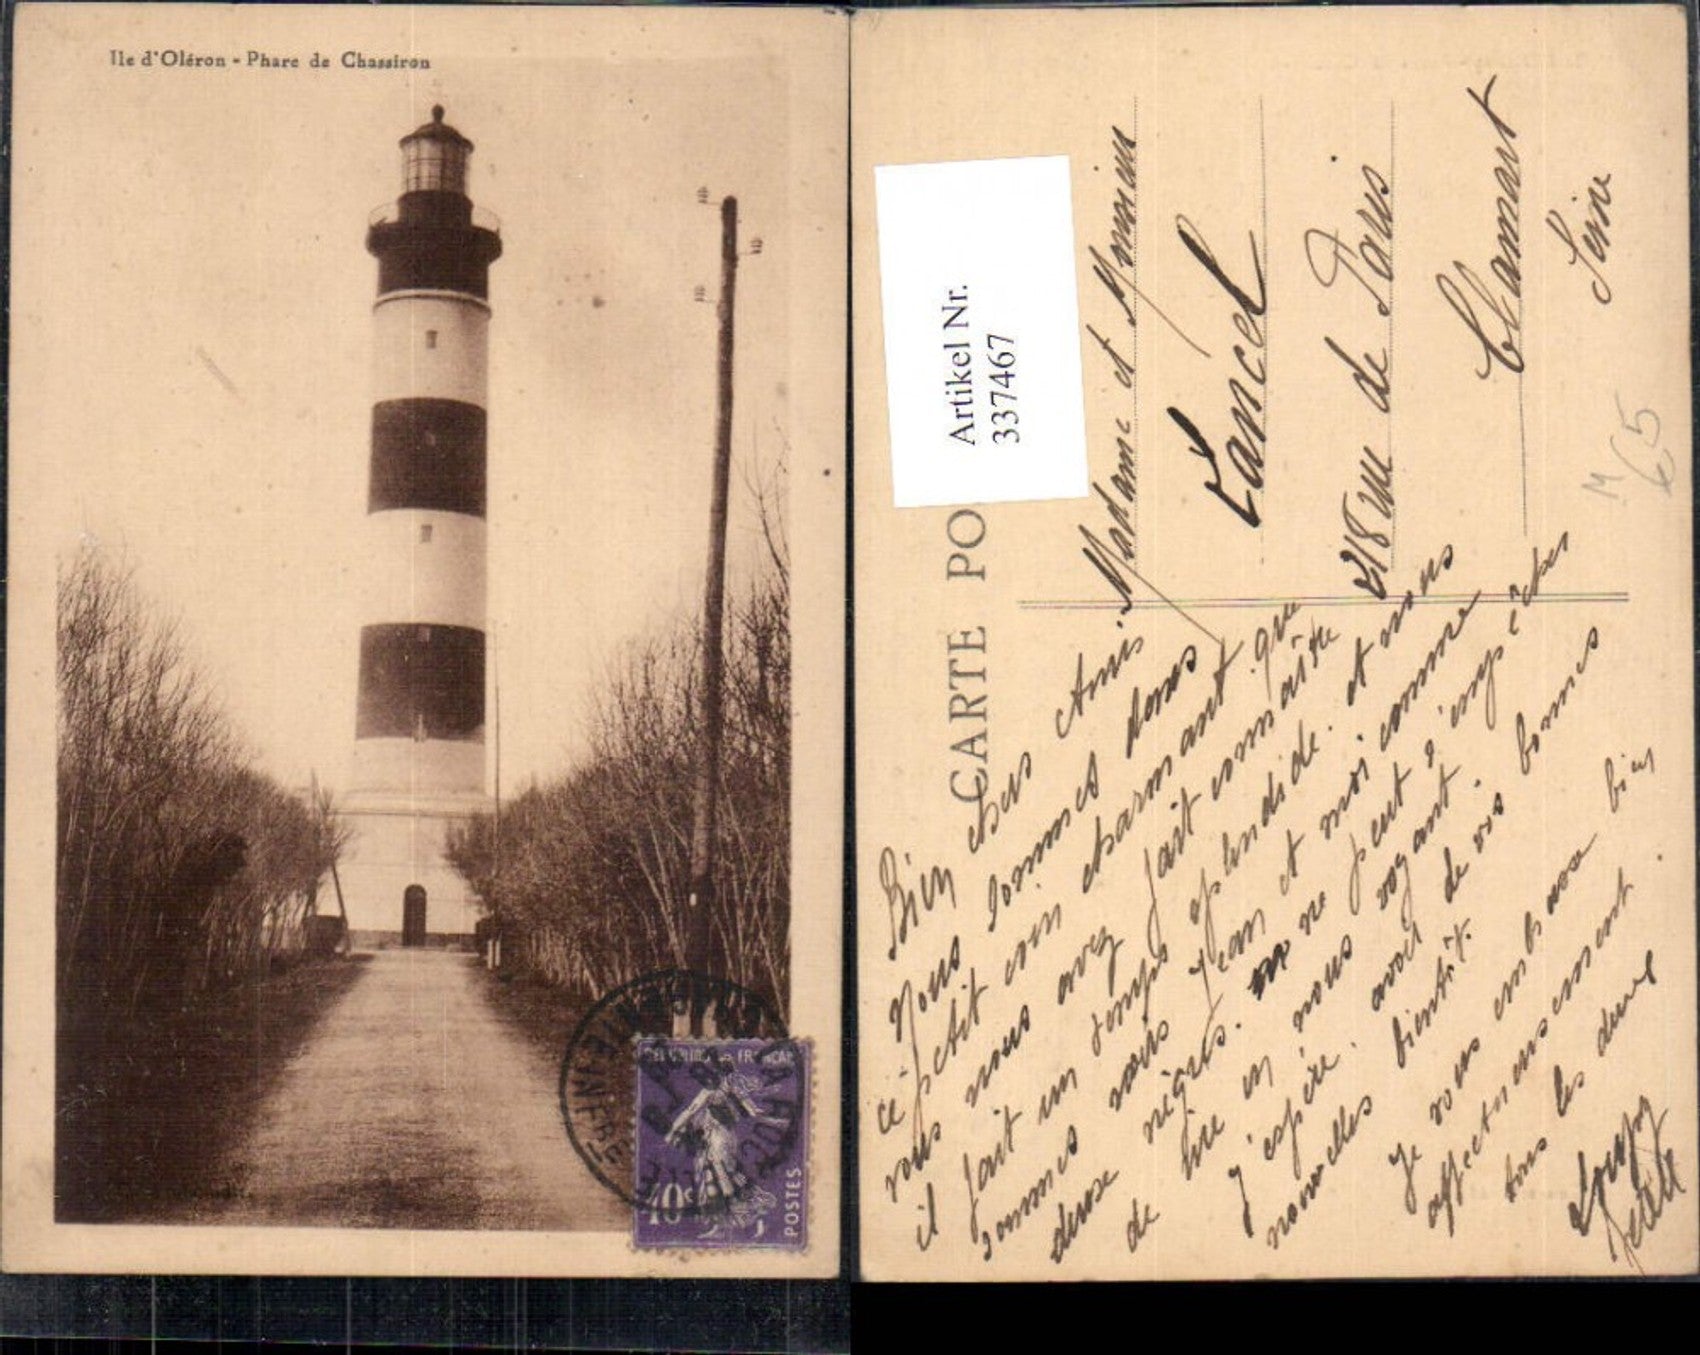 Ile d'Oléron - Phare de Chassiron
REPUBLIQUE FRANÇAISE
40c
POSTES
CHARENTE INFRE
Artikel Nr.
337467
CARTE PO
Madame et Monsieur
Lancel
218 rue de Paris
Clamart
Seine
M
65
Bien chers Amis
Nous sommes dans
ce petit coin charmant que
vous nous avez fait connaître
il fait un temps splendide. et nous
sommes noirs Jean et moi comme
deux nègres. on ne peut s'empêcher
de rire en nous voyant.
J'espère avoir de vos bonnes
nouvelles bientôt.
Je vous embrasse bien
affectueusement.
tous les deux